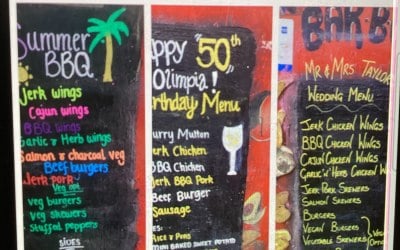 Summer
BBQ
Jerk wings
Cajun wings
BBQ wings
Garlic & Herb wings
Salmon & charcoal veg
Beef burgers
Jerk Pork
Veg opt
veg burgers
veg skewers
Stuffed peppers
Sides
ppy "50th
Olimpia!
irthday Menu
urry Mutton
erk Chicken
BQ Chicken
Jerk BBQ Pork
Beef Burger
Sausage
ice & Peas
BAKED SWEET POTATO
BAR B
Mr & Mrs Taylor
Wedding Menu
Jerk Chicken Wings
BBQ Chicken Wings
Cajun Chicken Wings
Garlic 'n' Herb Chicken
Jerk Pork Skewers
Salmon Skewers
Burgers
Vegan Burgers
Vegetable Skewers